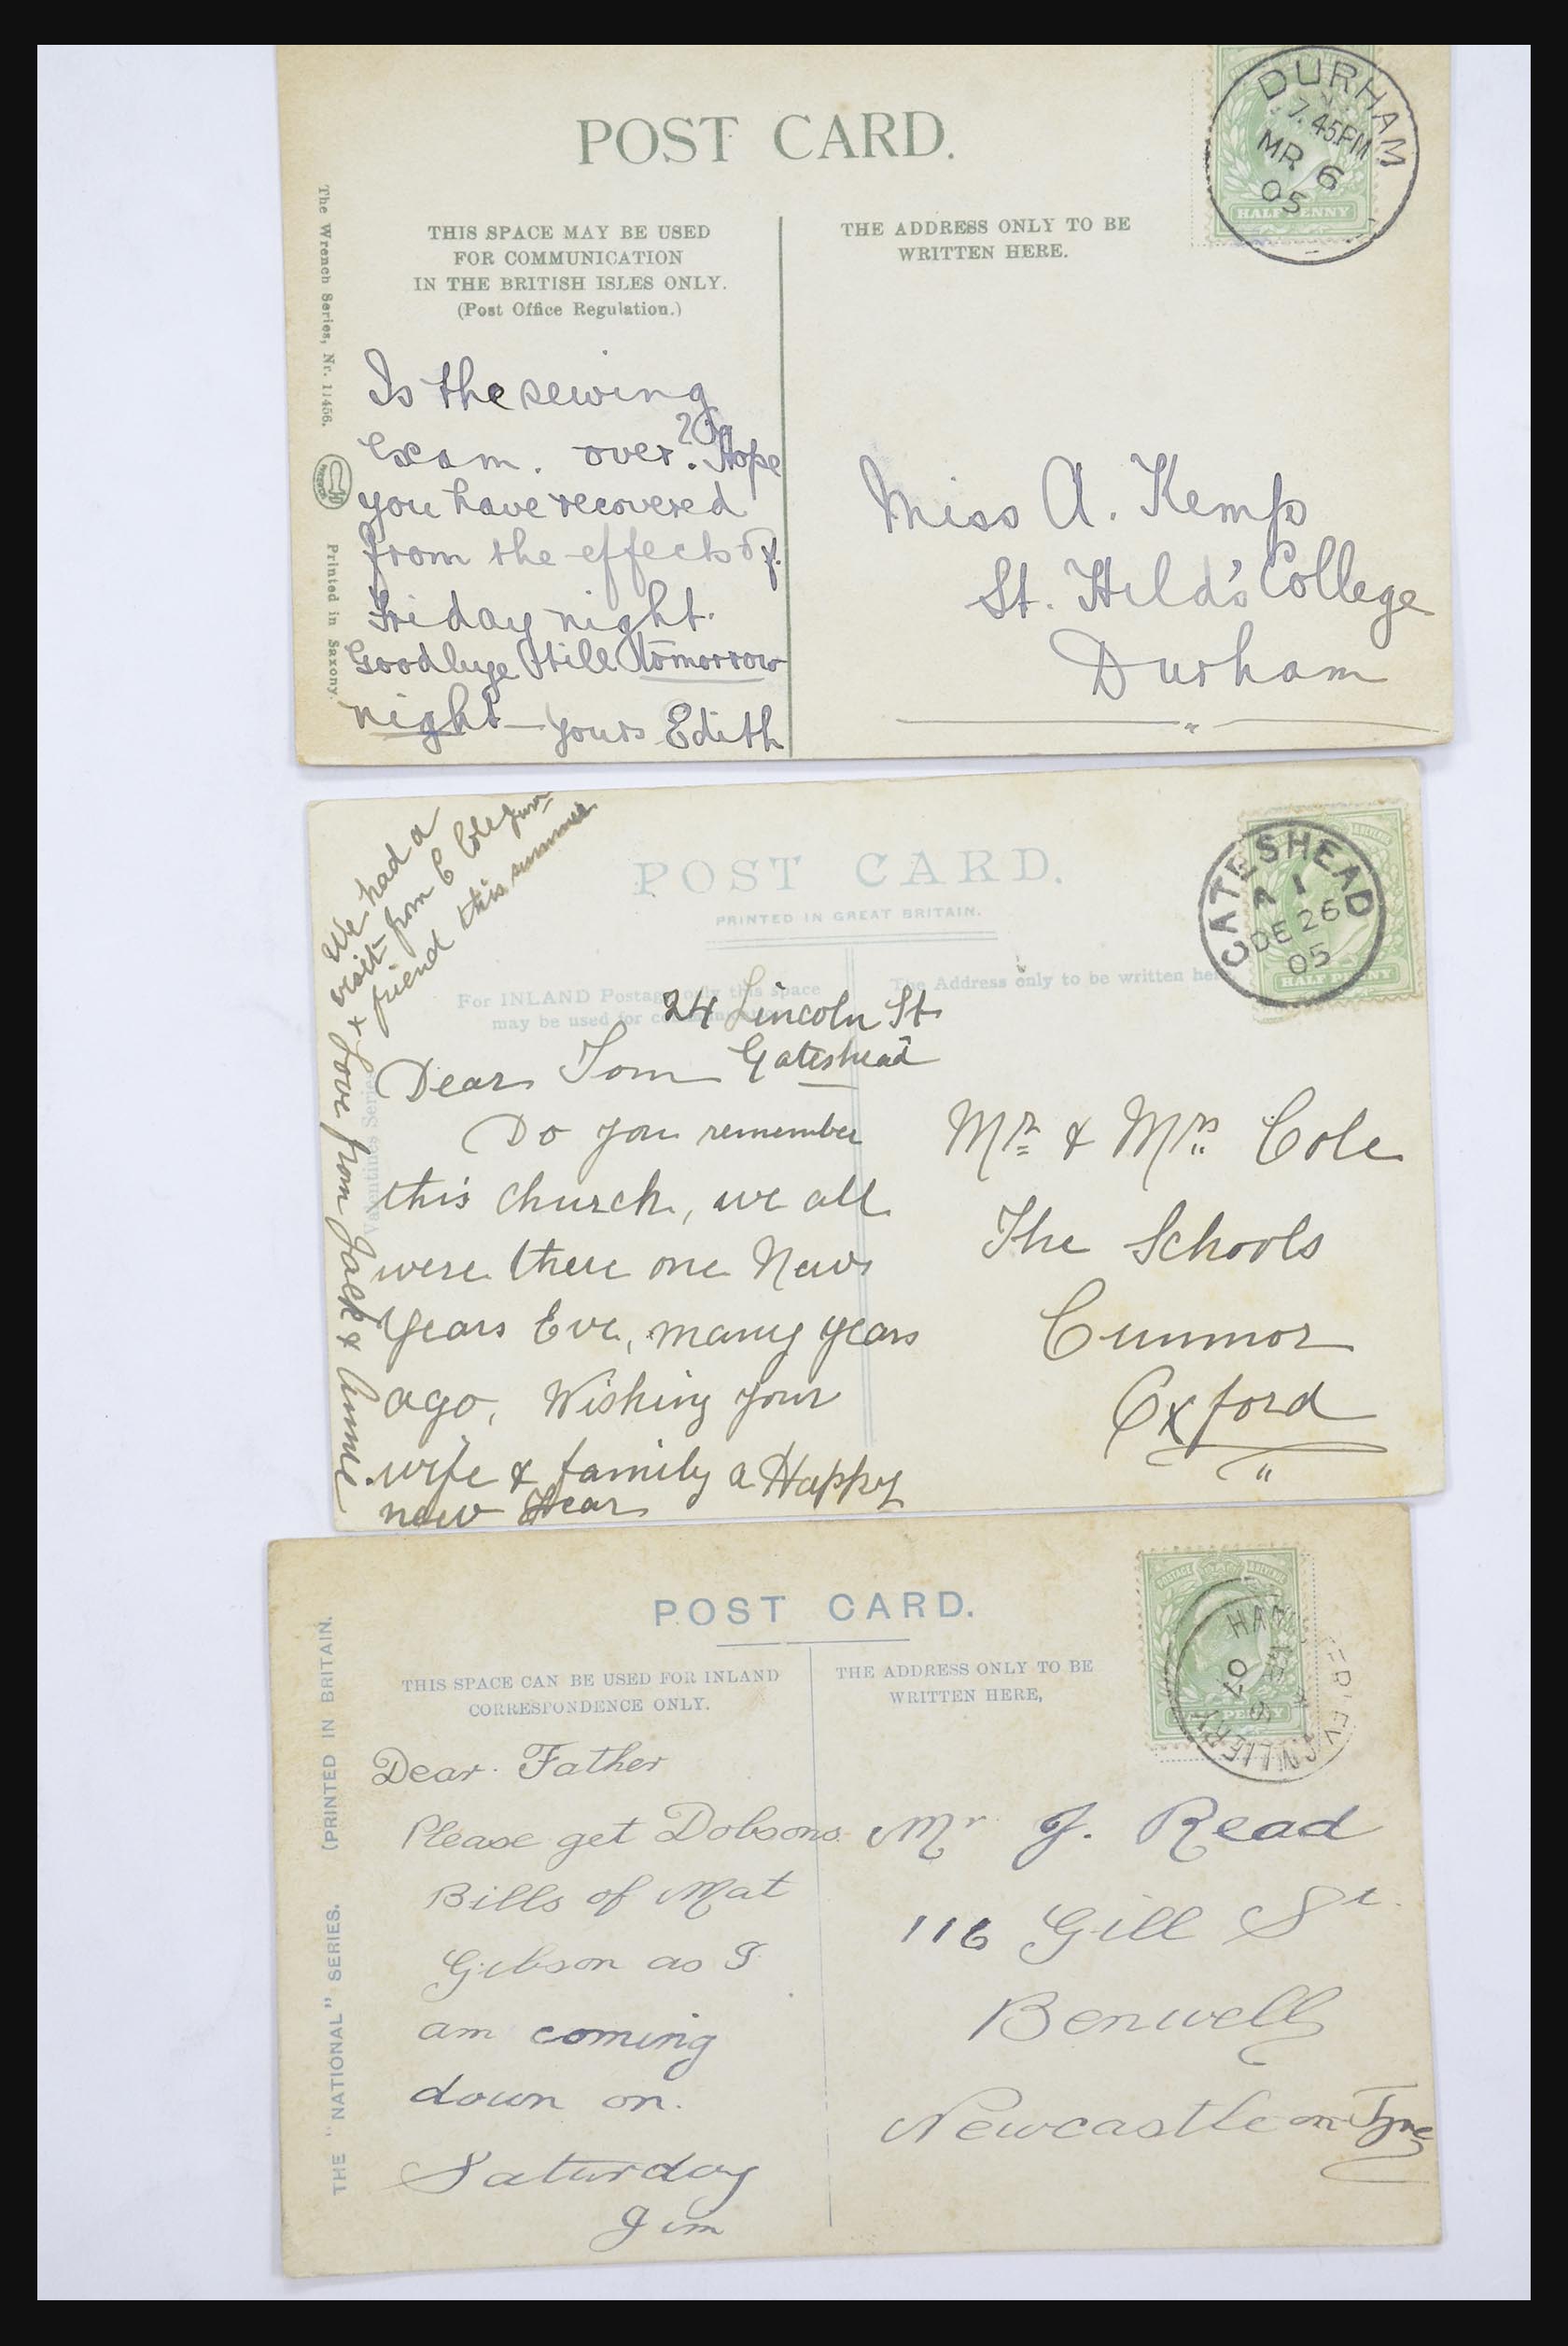 POST CARD.
THIS SPACE MAY BE USED
FOR COMMUNICATION
IN THE BRITISH ISLES ONLY.
(Post Office Regulation.)
THE ADDRESS ONLY TO BE
WRITTEN HERE.
DURHAM
7.45PM
MR 6
05
HALFPENNY
The Wrench Series, Nr. 11456.
Printed in Saxony.
Is the sewing
Exam. over? Hope
you have recovered
from the effects of
Friday night.
Goodbye till tomorrow
night yours Edith
Miss A. Kemp
St. Hild's College
Durham
POST CARD.
PRINTED IN GREAT BRITAIN.
For INLAND Postage only this space
may be used for
The Address only to be written here
GATESHEAD
DE 26
05
HALFPENNY
Valentines Series
We had a
visit from E Cole &
friend this summer
+ Love from Jack & Annie
24 Lincoln St
Gateshead
Dear Tom
Do you remember
this church, we all
were there one New
Years Eve, many years
ago. Wishing your
wife & family a Happy
new Year
Mr & Mrs Cole
The Schools
Cumnor
Oxford
POST CARD.
THIS SPACE CAN BE USED FOR INLAND
CORRESPONDENCE ONLY.
THE ADDRESS ONLY TO BE
WRITTEN HERE,
POSTAGE REVENUE
07
THE "NATIONAL" SERIES. (PRINTED IN BRITAIN.
Dear Father
Please get Dobsons
Bills of Mat
Gibson as I
am coming
down on.
Saturday
Jim
Mr J. Read
116 Gill St
Benwell
Newcastle on Tyne